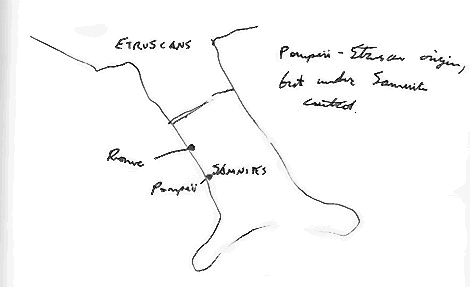 ETRUSCANS
Pompeii - Etruscan origin,
but under Samnite
control.
Rome
Pompeii
SAMNITES